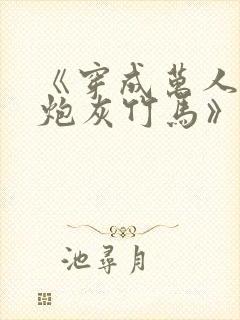 《穿成萬人
炮灰竹馬》
池尋月